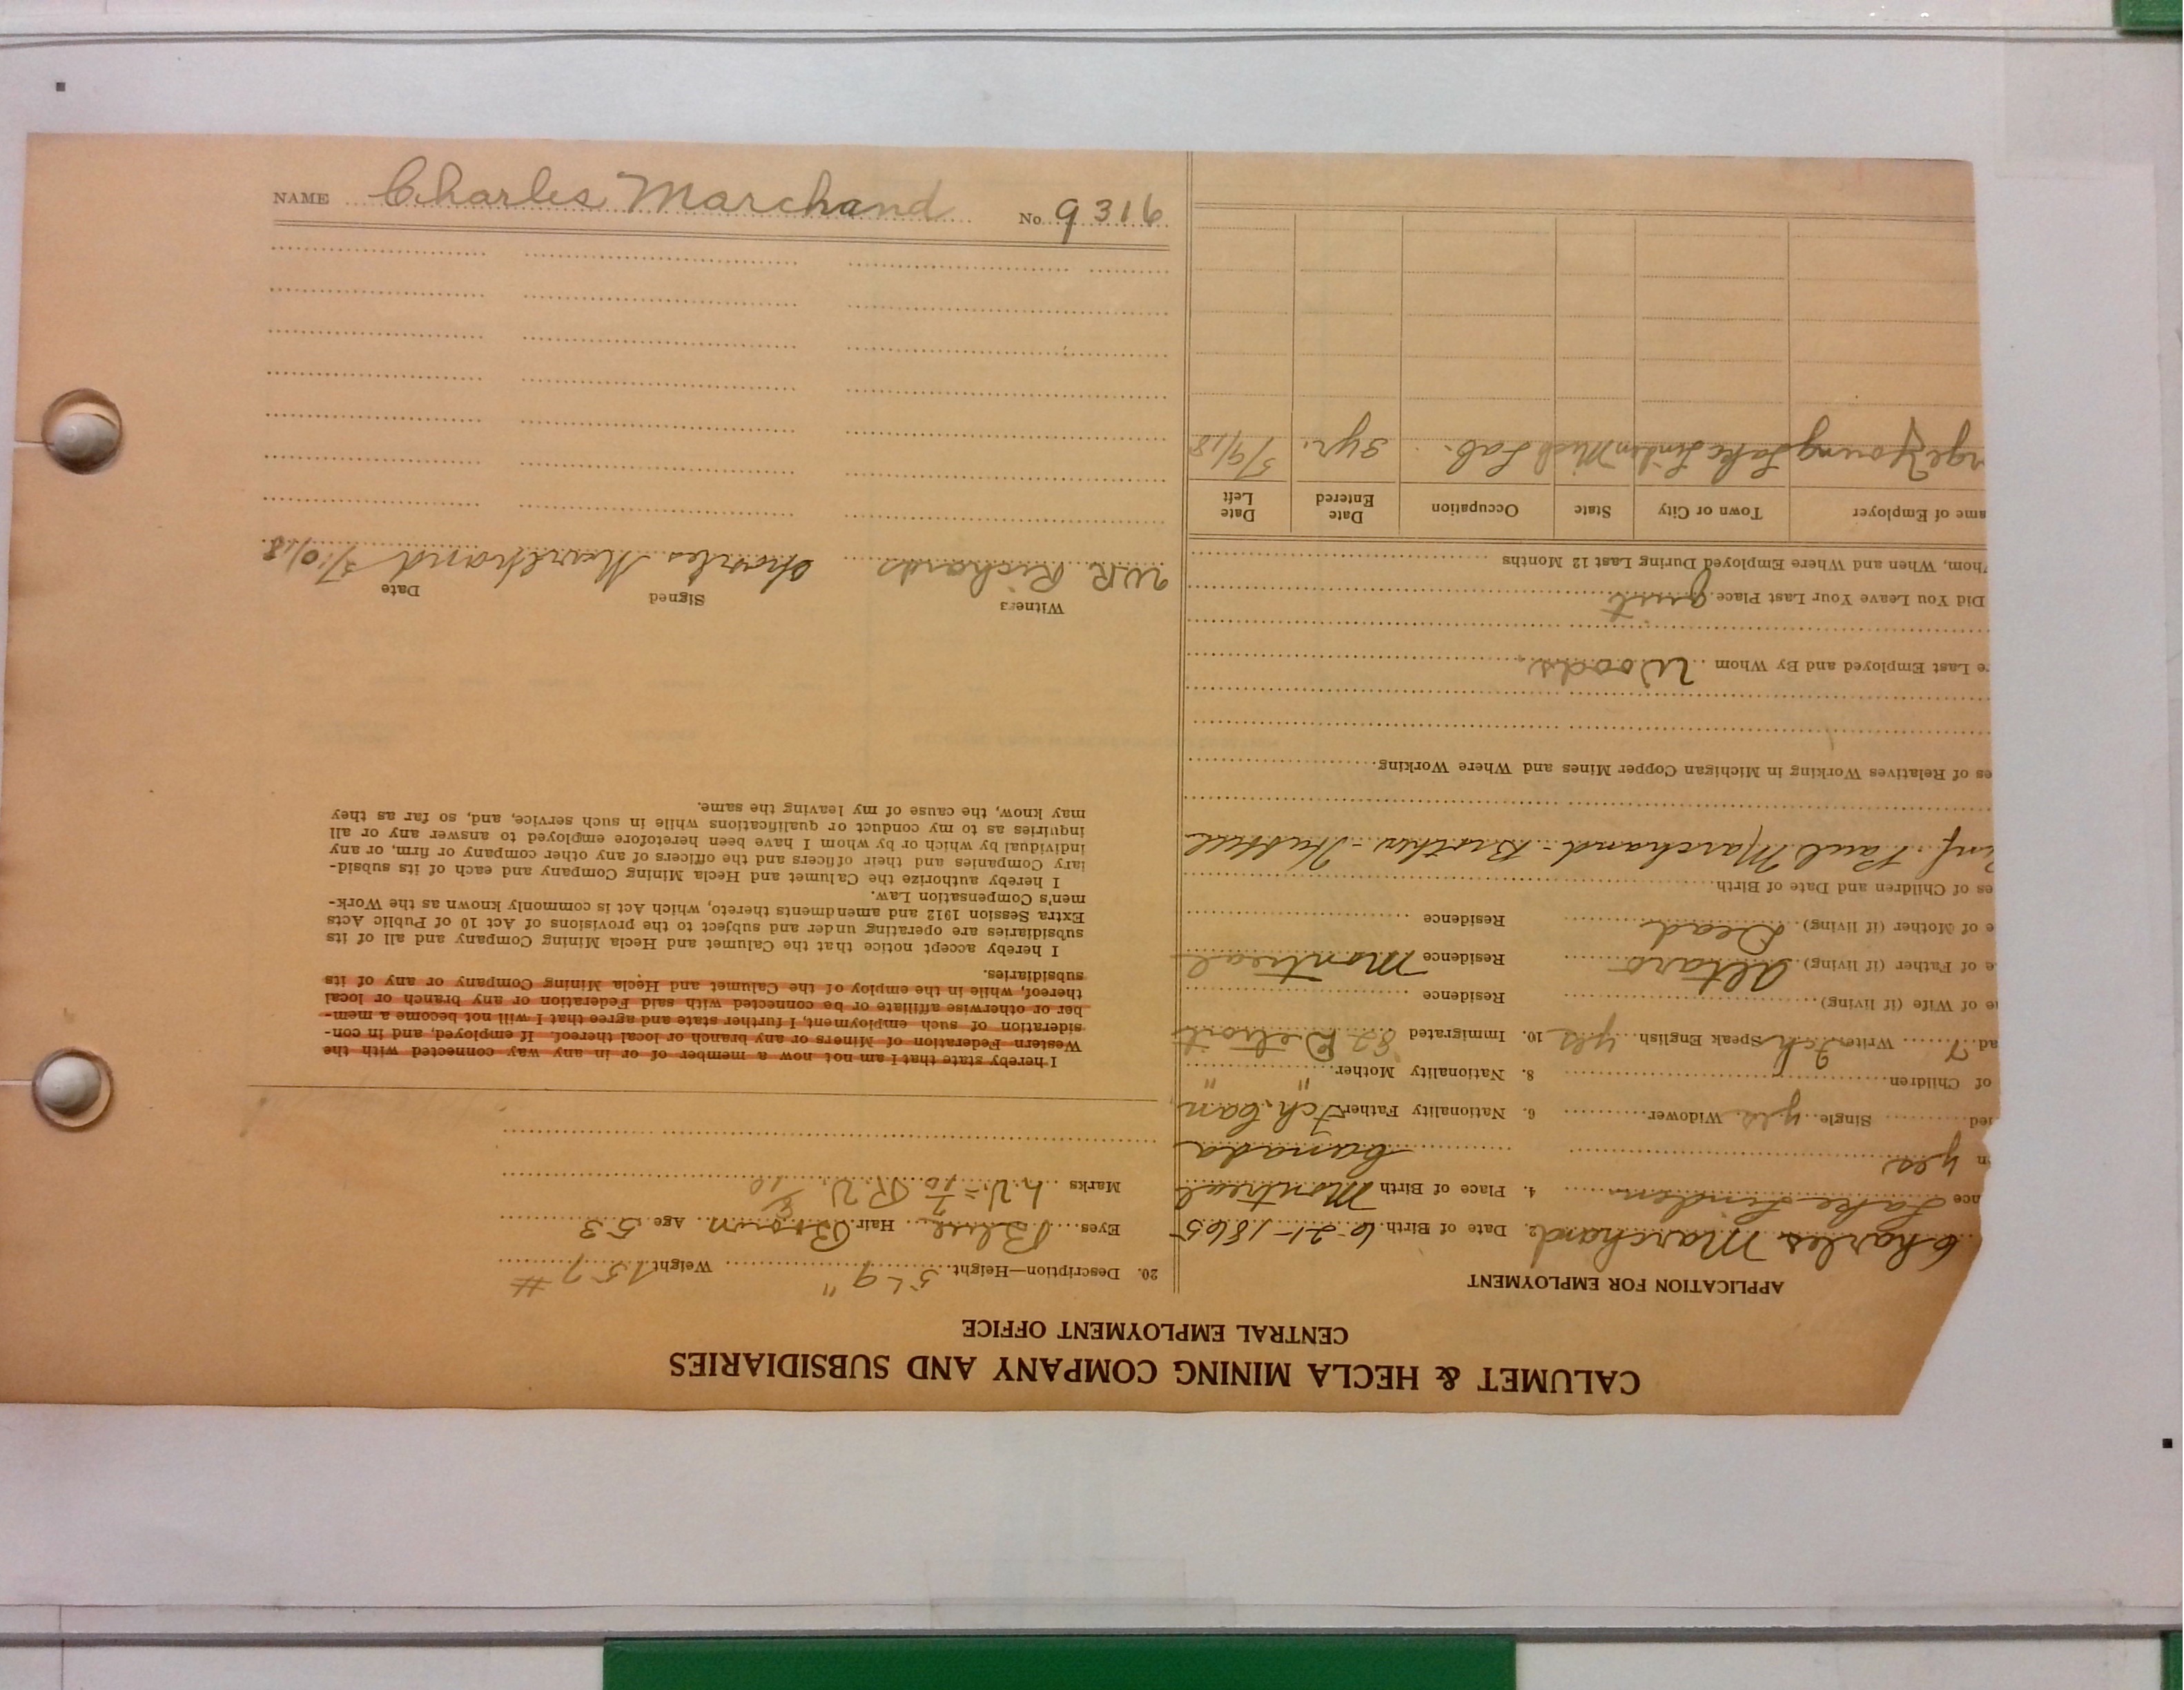 NAME Charles Marchand No. 9316
CALUMET & HECLA MINING COMPANY AND SUBSIDIARIES
CENTRAL EMPLOYMENT OFFICE
APPLICATION FOR EMPLOYMENT
Charles Marchand 2. Date of Birth 6-21-1865
nce Lake Linden 4. Place of Birth Montreal
n yes Canada
ied Single yes Widower 6. Nationality Father Fch. Can
of Children 8. Nationality Mother " "
ad Write Fch Speak English yes 10. Immigrated 82 Detroit
e of Wife (if living) Residence
e of Father (if living) Residence Montreal
e of Mother (if living) Dead Residence
es of Children and Date of Birth
Paul Marchand - Brother - Hubbell
es of Relatives Working in Michigan Copper Mines and Where Working
re Last Employed and By Whom Woods
Did You Leave Your Last Place quit
hom, When and Where Employed During Last 12 Months
ame of Employer Town or City State Occupation Date Entered Date Left
rge Young Lake Linden Mich Lab. 3 yr. 5/9/18
20. Description—Height 5' 9" Weight 157 #
Eyes Blue Hair Brown Age 53
Marks
I hereby state that I am not now a member of or in any way connected with the
Western Federation of Miners or any branch or local thereof. If employed, and in con-
sideration of such employment, I further state and agree that I will not become a mem-
ber or otherwise affiliate or be connected with said Federation or any branch or local
thereof, while in the employ of the Calumet and Hecla Mining Company or any of its
subsidiaries.
I hereby accept notice that the Calumet and Hecla Mining Company and all of its
subsidiaries are operating under and subject to the provisions of Act 10 of Public Acts
Extra Session 1912 and amendments thereto, which Act is commonly known as the Work-
men's Compensation Law.
I hereby authorize the Calumet and Hecla Mining Company and each of its subsid-
iary Companies and their officers and the officers of any other company or firm, or any
individual by which or by whom I have been heretofore employed to answer any or all
inquiries as to my conduct or qualifications while in such service, and, so far as they
may know, the cause of my leaving the same.
Witness Signed Date
W.R. Richards Charles Marchand 5/10/18